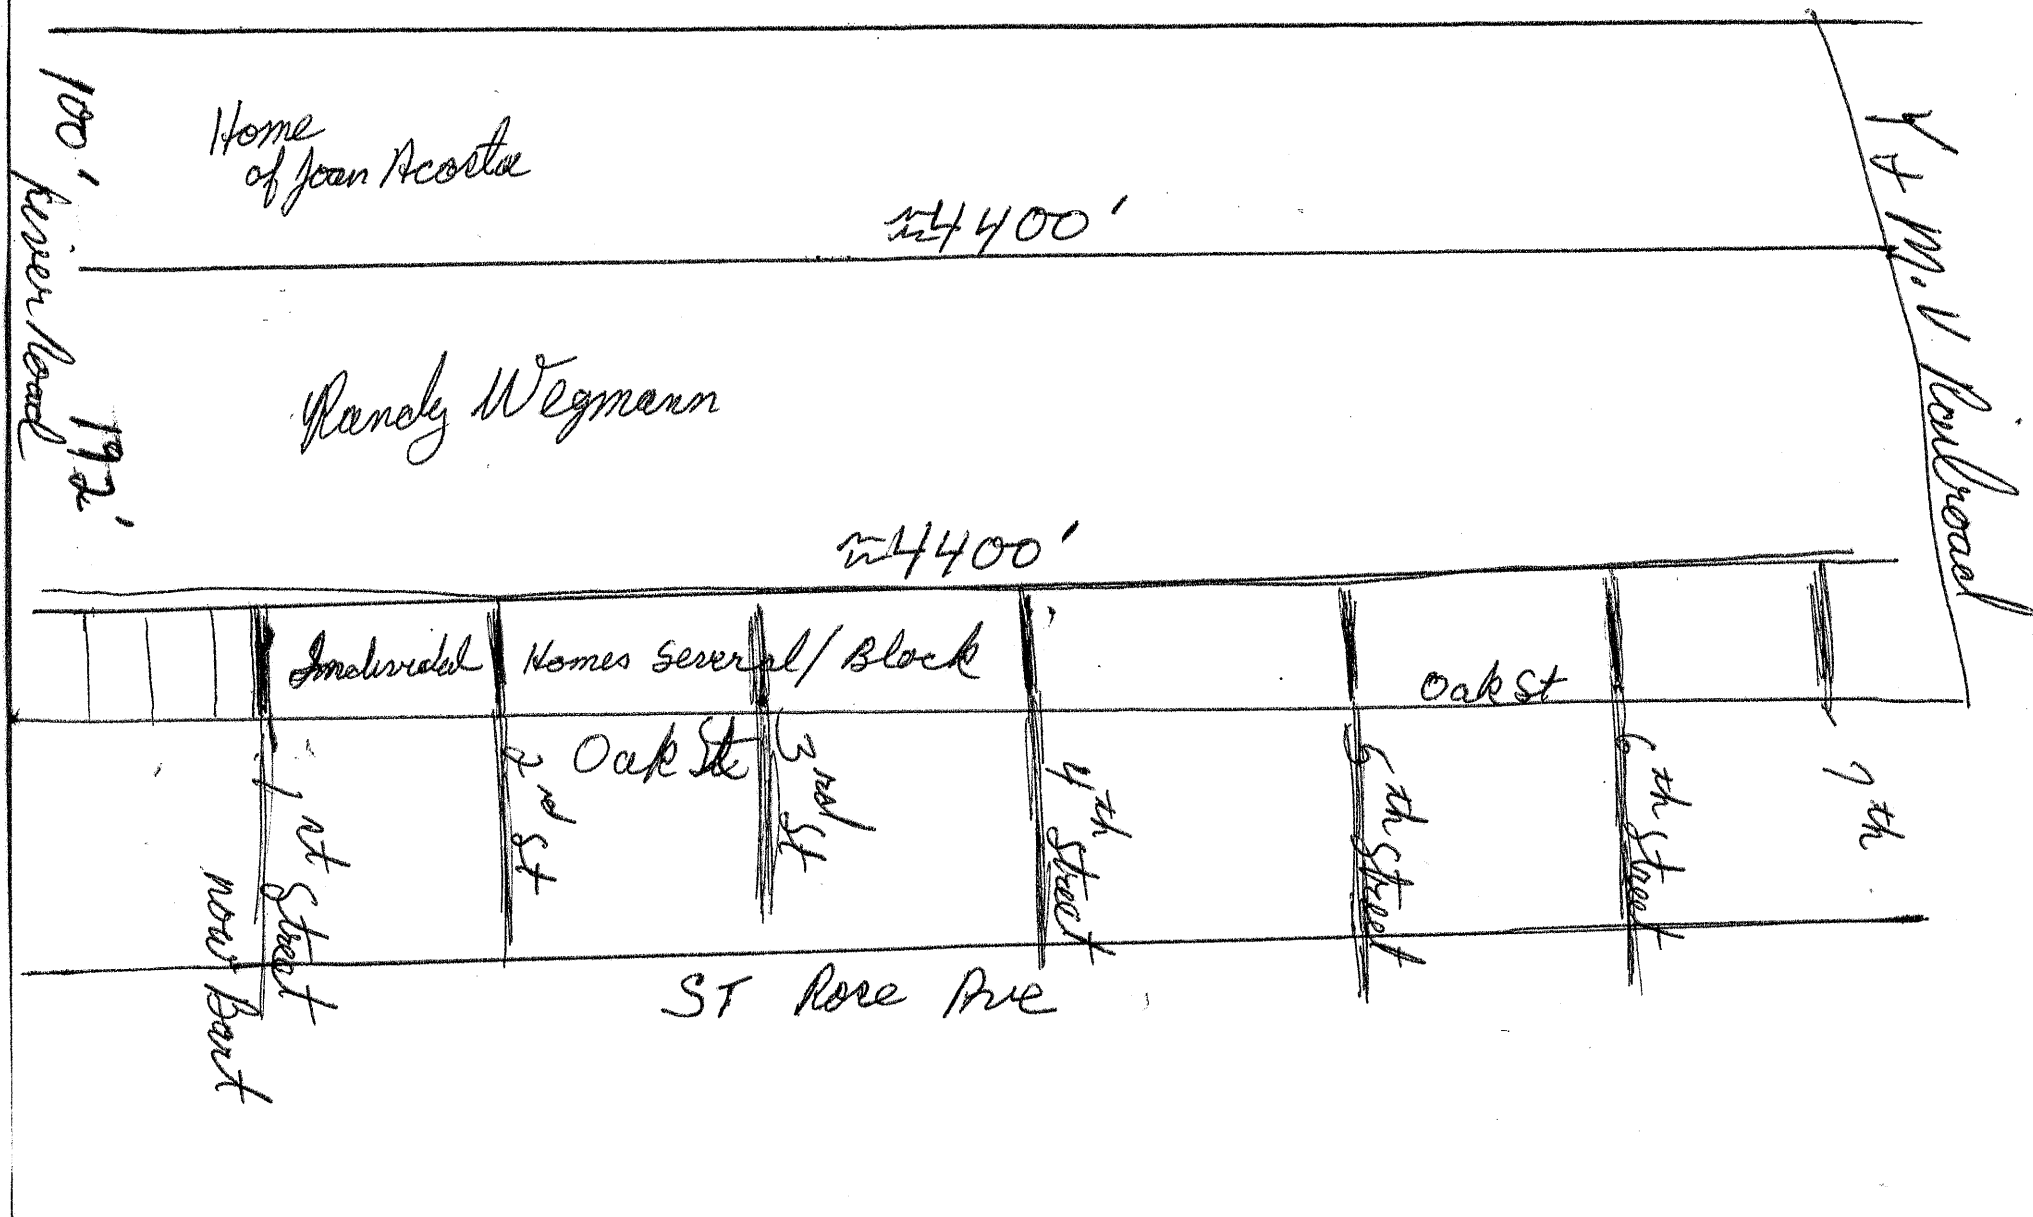 100'
River Road
192'
Home
of Joan Acosta
≈4400'
Y & M.V Railroad
Randy Wegmann
≈4400'
Individal Homes Several/Block
Oak St
Oak St
1st Street
now Bart
2rd St
3rd St
4th Street
5th Street
6th Street
7th
ST Rose Ave